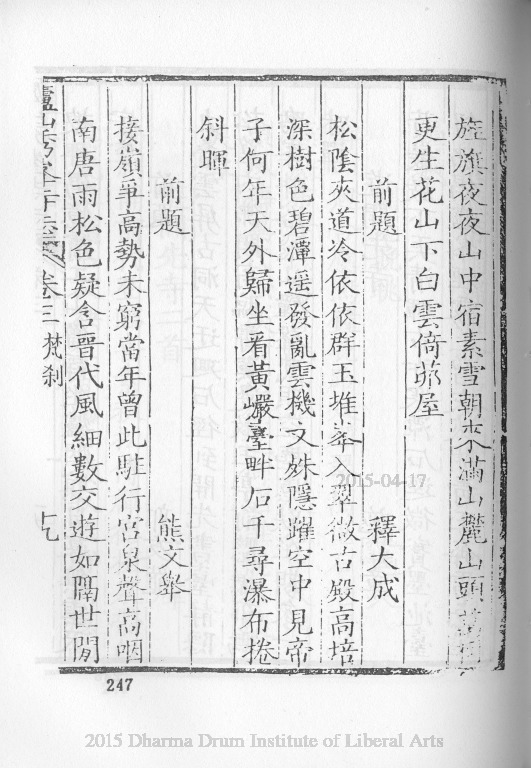 旌旗夜夜山中宿素雪朝來滿山麓山頭
更生花山下白雲倚茆屋
前題 釋大成
松陰夾道冷依依群玉堆峯入翠微古殿高培
深樹色碧潭遥發亂雲機文姝隱躍空中見帝
子何年天外歸坐看黃巖臺畔石千尋瀑布捲
斜暉
前題 熊文舉
接嶺爭高勢未窮當年曾此駐行宮泉聲高咽
南唐雨松色疑含晉代風細數交遊如隔世閒
廬山秀峯寺志 卷三 梵刹 十九
247
2015-04-17
2015 Dharma Drum Institute of Liberal Arts